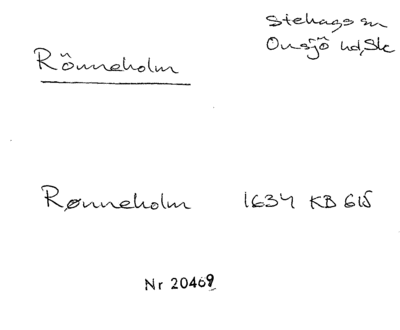 Stehags sn
Onsjö hd, Sk
Rönneholm
Rønneholm 1634 KB 615
Nr 20469